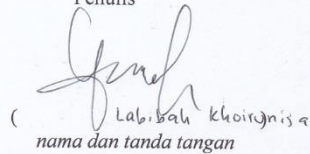 Penulis
( Labibah Khoirunisa
nama dan tanda tangan